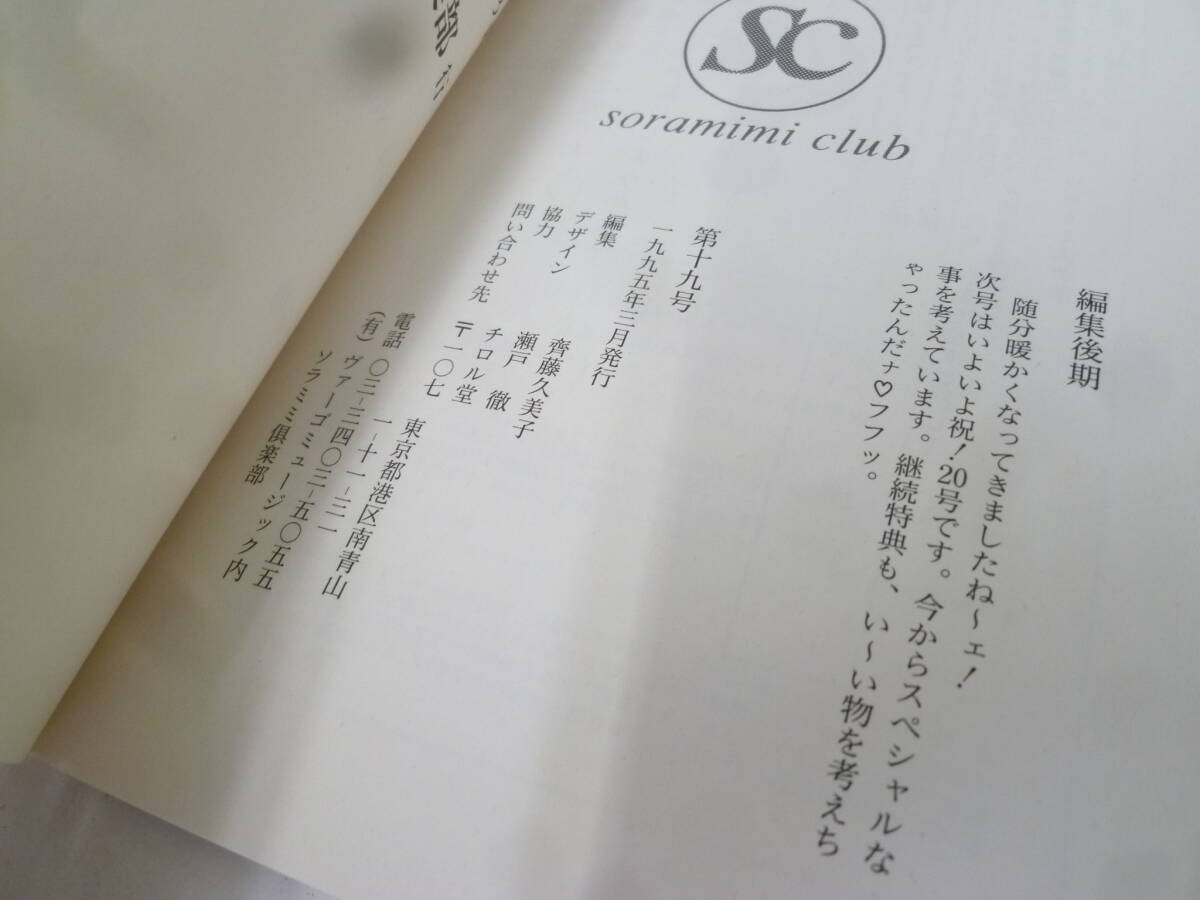 SC
soramimi club
編集後期
随分暖かくなってきましたね～ェ！
次号はいよいよ祝！20号です。今からスペシャルな
事を考えています。継続特典も、い～い物を考えち
ゃったんだナ♡フフッ。
第十九号
一九九五年三月発行
編集 齊藤久美子
デザイン 瀬戸 徹
協力 チロル堂
問い合わせ先 〒一〇七
東京都港区南青山
一-十一-三一
電話 〇三-三四〇三-五〇五五
（有）ヴァーゴミュージック内
ソラミミ倶楽部